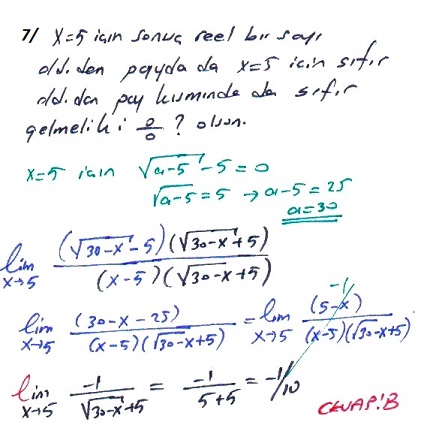 7/ x=5 için sonuç reel bir sayı
old.dan payda da x=5 için sıfır
old.dan pay kısmında da sıfır
gelmeli ki 0/0 ? olsun.
x=5 için √(a-5) - 5 = 0
√(a-5) = 5 → a-5 = 25
a=30
lim x→5 (√(30-x) - 5)(√(30-x) + 5) / (x-5)(√(30-x) + 5)
lim x→5 (30-x-25) / (x-5)(√(30-x)+5) = lim x→5 (5-x) -1 / (x-5)(√(30-x)+5)
lim x→5 -1 / √(30-x)+5 = -1 / 5+5 = -1/10
CEVAP:B